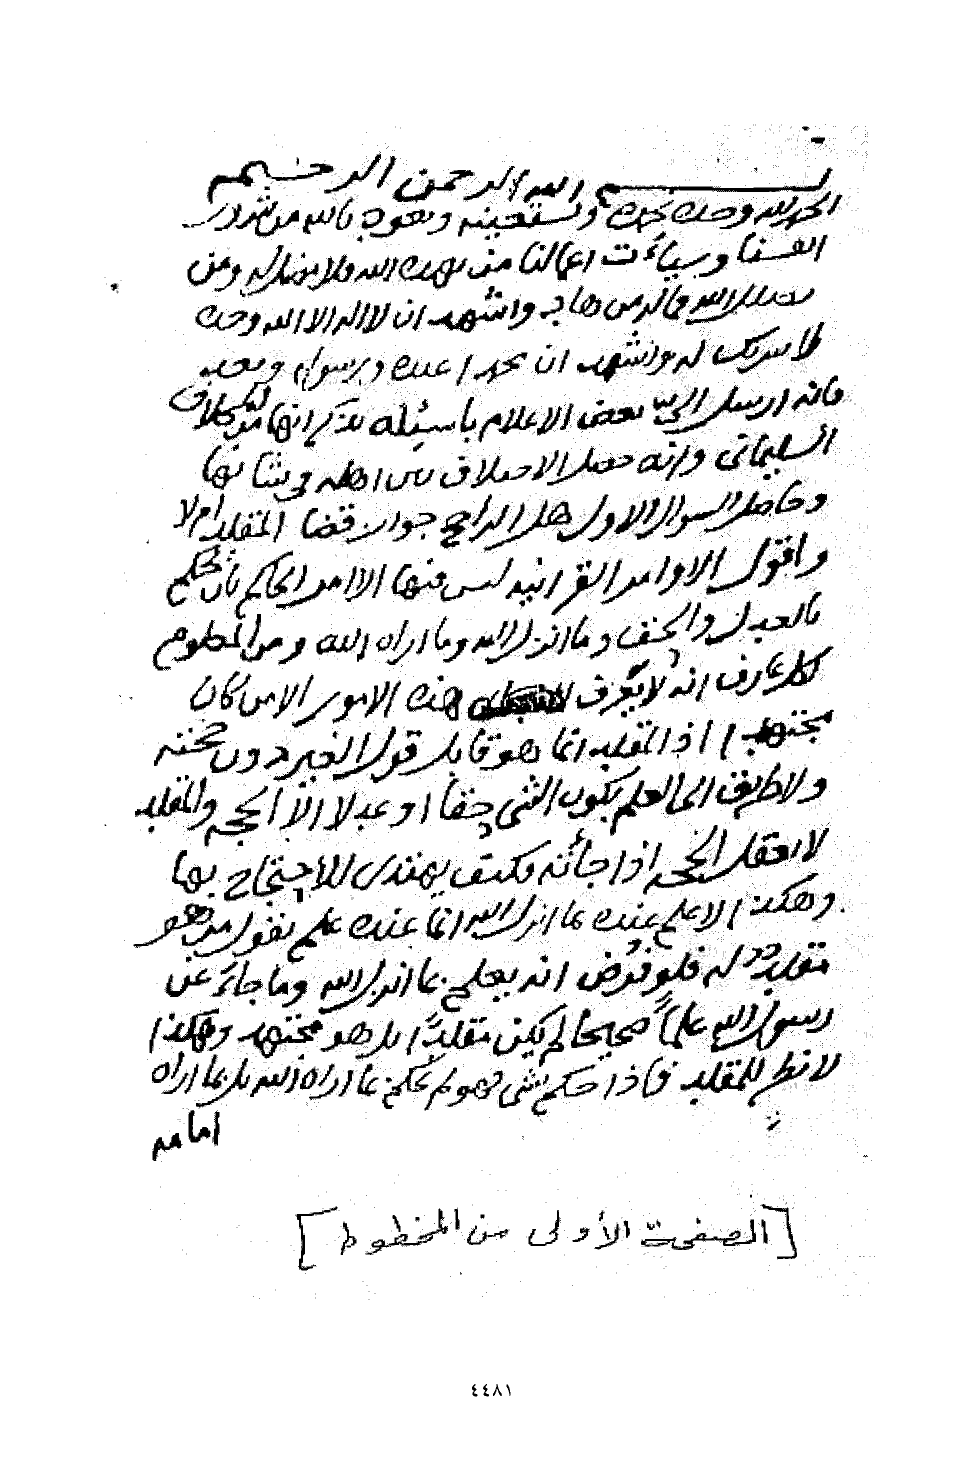 بسم الله الرحمن الرحيم
الحمد لله وحده نحمده ونستعينه ونعوذ بالله من شرور
انفسنا وسيأت اعمالنا من يهده الله فلا مضل له ومن
يضلل الله فما له من هاد واشهد ان لا اله الا الله وحده
لا شريك له واشهد ان محمدا عبده ورسوله وبعد
فانه ارسل الي بعض الاعلام باسئلة يذكر انها من
السليماني وانه حصل الاختلاف بين اهله في شانها
وحاصل السوال الاول هل الراجح جواز قضا المقلد ام لا
واقول الاوامر القرانية ليس فيها الا امر الحاكم بان يحكم
بالعدل والحق وما انزل الله وما اراه الله ومن المعلوم
لكل عارف انه لا يعرف هذه الامور الا من كان
مجتهدا اذ المقلد انما هو قابل قول الغير دون حجته
ولا طريق الى العلم بكون الشي حقا او عدلا الا الحجة والمقلد
لا يعقل الحجة اذا جائته فكيف يهتدي للاحتجاج بها
وهكذا لا علم عنده بما انزل الله انما عنده علم بقول من هو
مقلد له فلو فرض انه يعلم بما انزل الله وما جاء عن
رسول الله علماً صحيحا لم يكن مقلداً بل هو مجتهد وهكذا
لا نظر للمقلد فاذا حكم بشي فهو لم يحكم بما اراه الله بل بما اراه
امامه
[الصفحة الأولى من المخطوط]
٤٤٨١